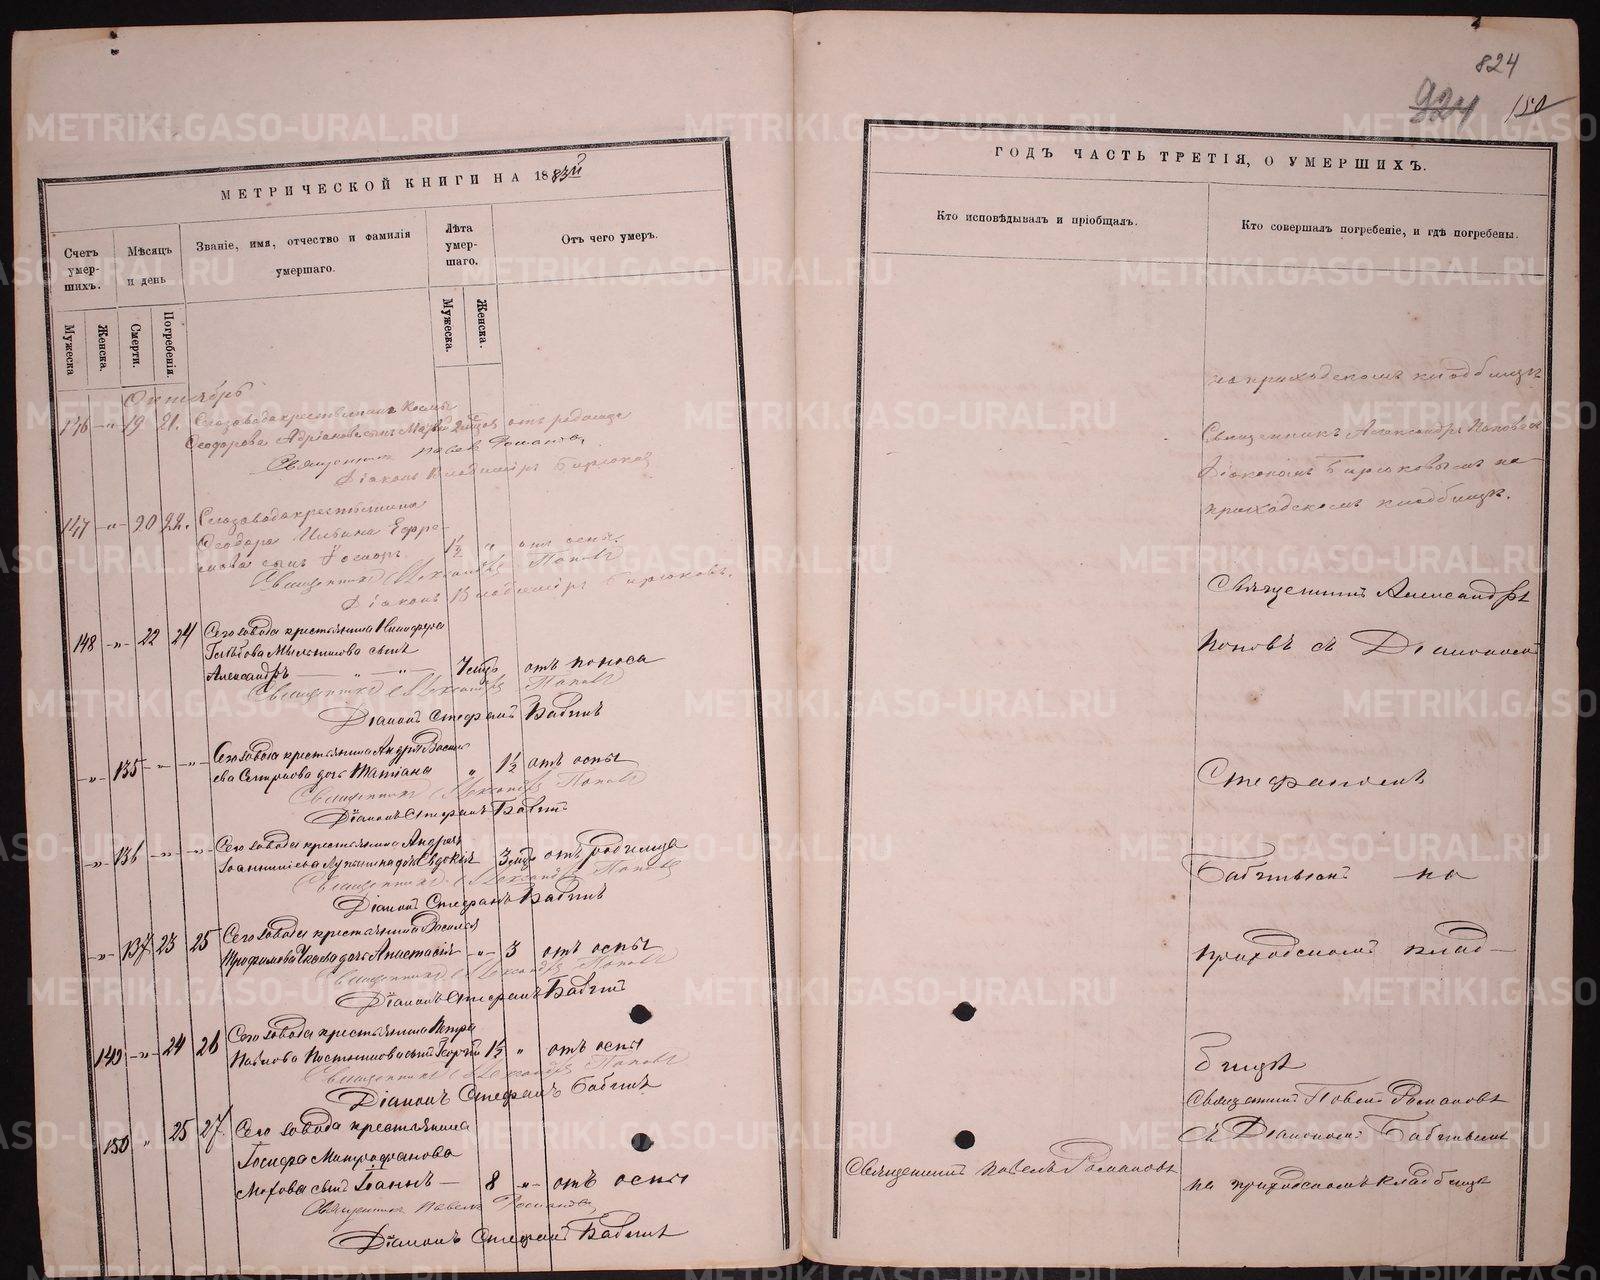 824
924 150
МЕТРИЧЕСКОЙ КНИГИ НА 1883й
ГОДЪ ЧАСТЬ ТРЕТІЯ, О УМЕРШИХЪ.
Счетъ умер-шихъ.
Мѣсяцъ и день
Званіе, имя, отчество и фамилія умершаго.
Лѣта умер-шаго.
Отъ чего умеръ.
Мужеска
Женска.
Смерти.
Погребенія.
Мужеска.
Женска.
Октябрь
146 -"- 19 21. Сегозавода крестьянина Космы
Ѳеодорова отъ родимца
Священникъ Павелъ Романовъ
Діаконъ Владиміръ Бирюковъ
147 -"- 20 22. Сегозавода крестьянина
Ѳеодора Ильина Ефре-
мова сынъ 1½ " отъ оспы.
Священникъ Александръ Поповъ
Діаконъ Владиміръ Бирюковъ.
148 -"- 22 24 Сего завода крестьянина Никифора
Глѣбова Мыльникова сынъ
Александръ 7 мцъ отъ поноса
Священникъ Александръ Поповъ
Діаконъ Стефанъ Бабинъ
-"- 135 -"- -"- Сего завода крестьянина Андрея Василь
ева дочь Татіана " 1½ отъ оспы
Священникъ Александръ Поповъ
Діаконъ Стефанъ Бабинъ
-"- 136 -"- -"- Сего завода крестьянина Андрея
Іоанникіева дочь Евдокія 3 мцъ отъ родимца
Священникъ Александръ Поповъ
Діаконъ Стефанъ Бабинъ
-"- 137 23 25 Сего завода крестьянина Василія
Трофимова дочь Анастасія -"- 3 отъ оспы
Священникъ Александръ Поповъ
Діаконъ Стефанъ Бабинъ
149 -"- 24 26 Сего завода крестьянина Петра
Павлова Постникова сынъ Георгій 1½ " отъ оспы
Священникъ Александръ Поповъ
Діаконъ Стефанъ Бабинъ
150 " 25 27. Сего завода крестьянина
Іосифа Митрофанова
Мохова сынъ Іоаннъ — 8 -"- отъ оспы
Священникъ Павелъ Романовъ
Діаконъ Стефанъ Бабинъ
Кто исповѣдывалъ и пріобщалъ.
Священникъ Павелъ Романовъ
Кто совершалъ погребеніе, и гдѣ погребены.
на приходскомъ кладбищѣ
Священникъ Александръ Поповъ съ
Діакономъ Бирюковымъ на
приходскомъ кладбищѣ.
Священникъ Александръ
Поповъ съ Діакономъ
Стефаномъ
Бабинымъ на
приходскомъ клад-
бищѣ
Священникъ Павелъ Романовъ
съ Діакономъ Бабинымъ
на приходскомъ кладбищѣ
METRIKI.GASO-URAL.RU